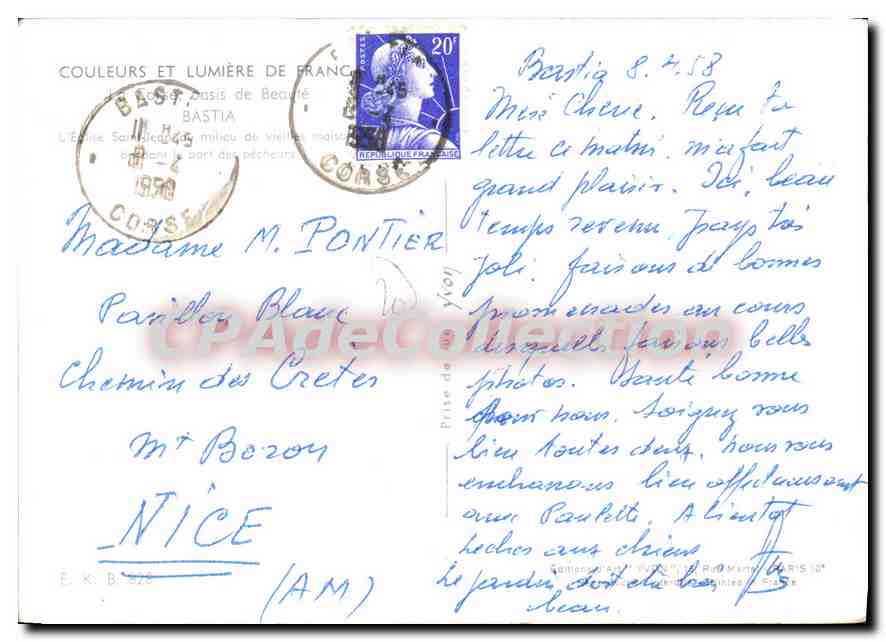 COULEURS ET LUMIÈRE DE FRANCE
La Corse, Oasis de Beauté
BASTIA
L'Eglise Saint-Jean au milieu de vieilles maisons
le port des pêcheurs
BASTIA
11 H 45
8 - 4
1958
CORSE
POSTES
20F
REPUBLIQUE FRANÇAISE
CORSE
Madame M. PONTIER
Pavillon Blanc
Chemin des Crêtes
Mt Boron
NICE
(AM)
E. K. B. 928
Prise de vue Yvon
CPAdeCollection
Bastia 8.4.58
Chérie. Reçu ta
lettre ce matin, m'a fait
grand plaisir. Ici, beau
temps revenu, pays très
joli. faisons de bonnes
promenades au cours
desquelles faisons belles
photos. Santé bonne
pour nous. Soignez vous
bien toutes deux. Nous vous
embrassons bien affectueusement
avec Paulette. A bientôt
Léches aux chiens
Le jardin doit être très
beau.
Editions d'Art "YVON", 15, Rue Martel, PARIS 10e
Printed in France